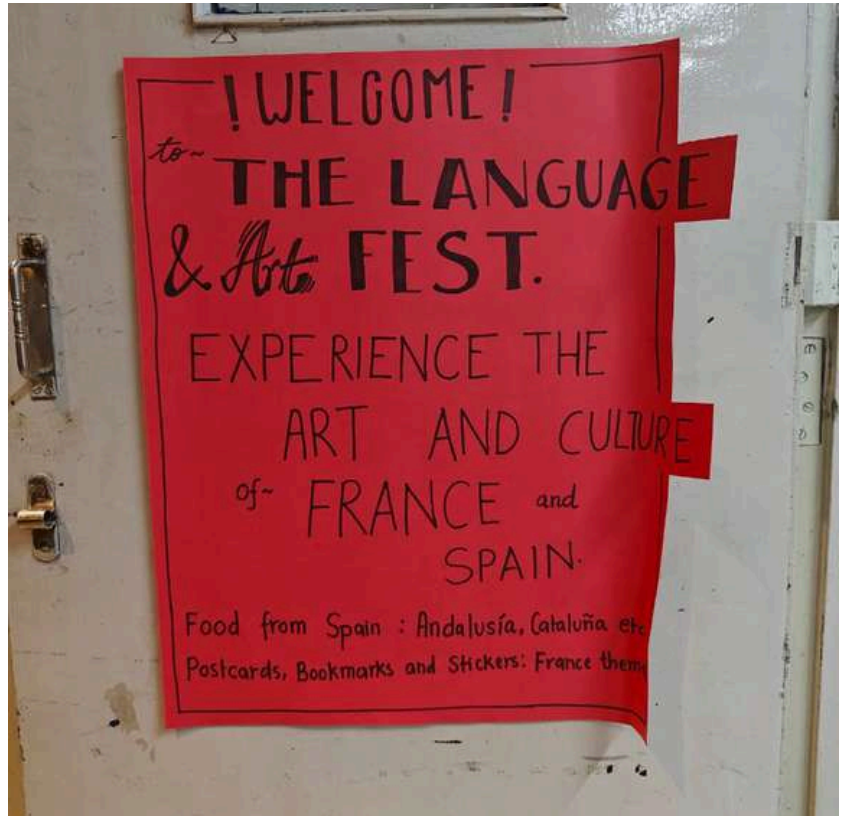 ! WELCOME !
to~ THE LANGUAGE
& Art FEST.
EXPERIENCE THE
ART AND CULTURE
of~ FRANCE and
SPAIN.
Food from Spain : Andalusía, Cataluña etc
Postcards, Bookmarks and Stickers: France